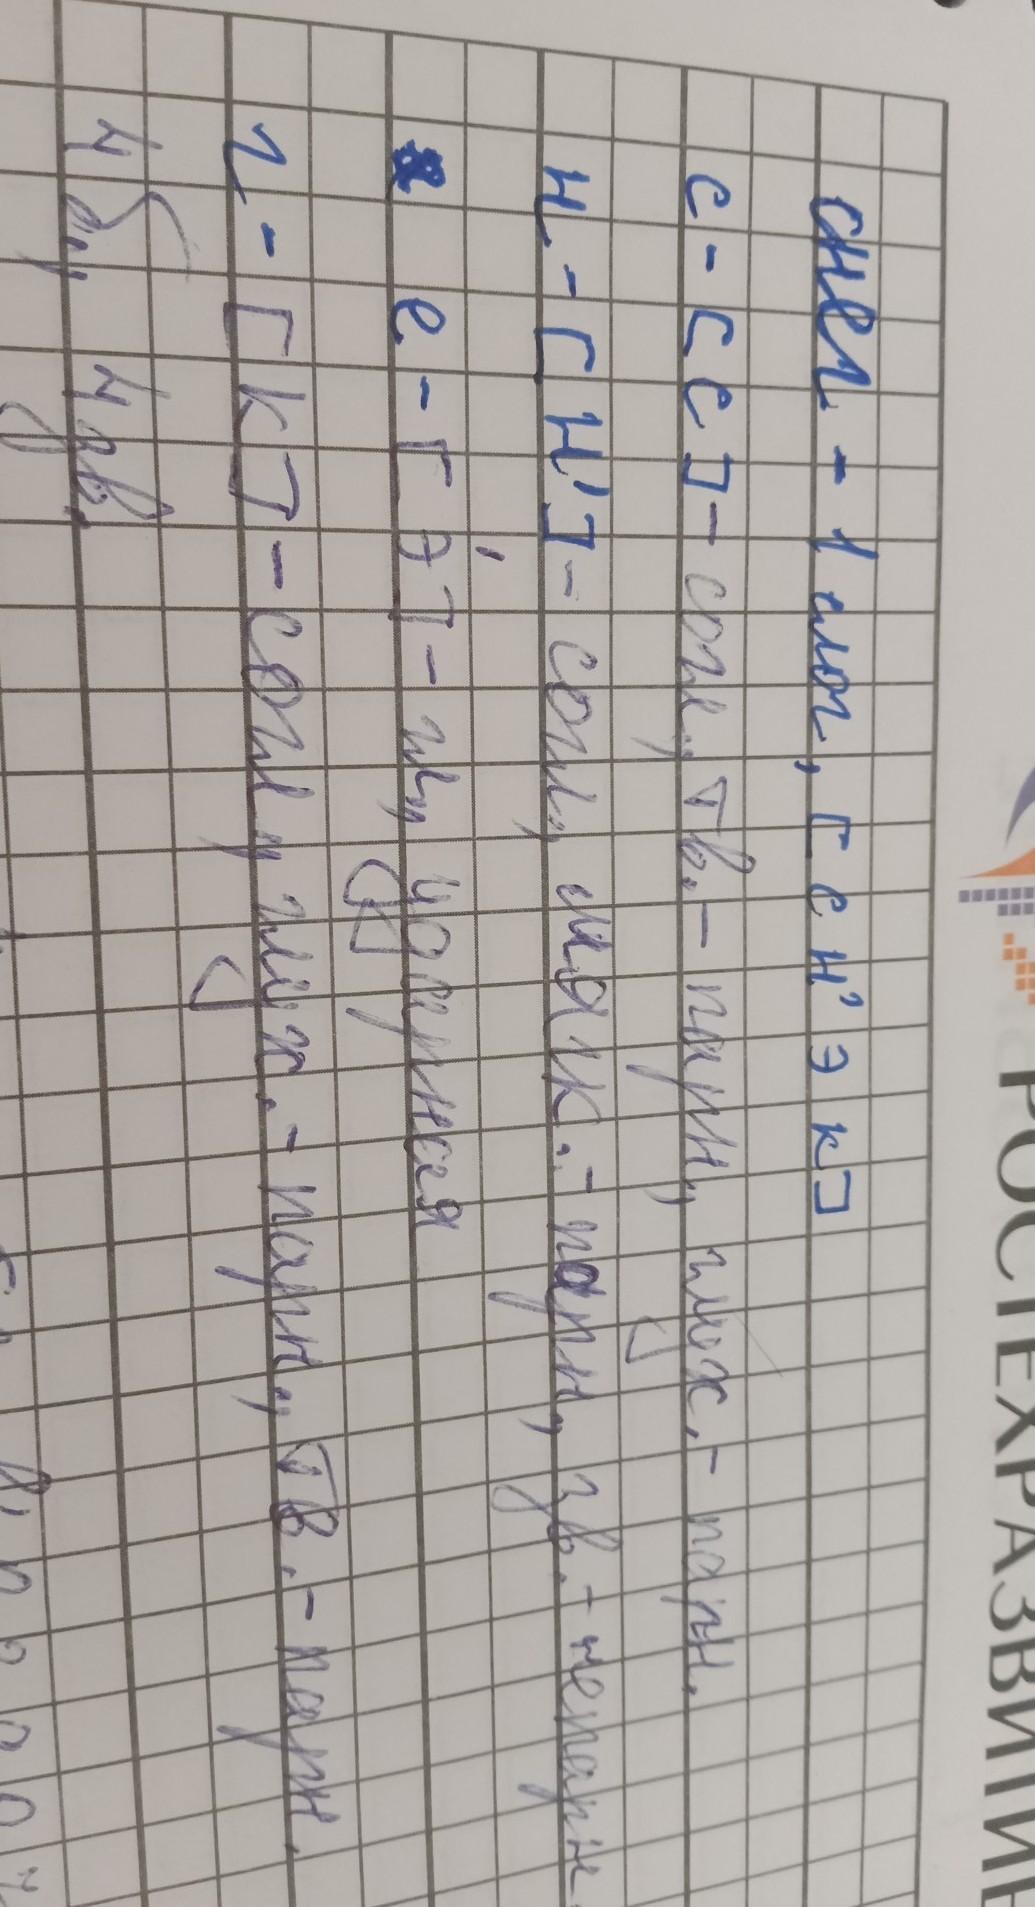 РОСТЕХРАЗВИТИЕ
снег - 1 слог, [с н' э к]
с - [с] - согл., тв. - парн., глух. - парн.
н - [н'] - согл., мягк. - парн., зв. - непарн.
е - [э́] - гл., ударная
г - [к] - согл., глух. - парн., тв. - парн.
4 б., 4 зв.